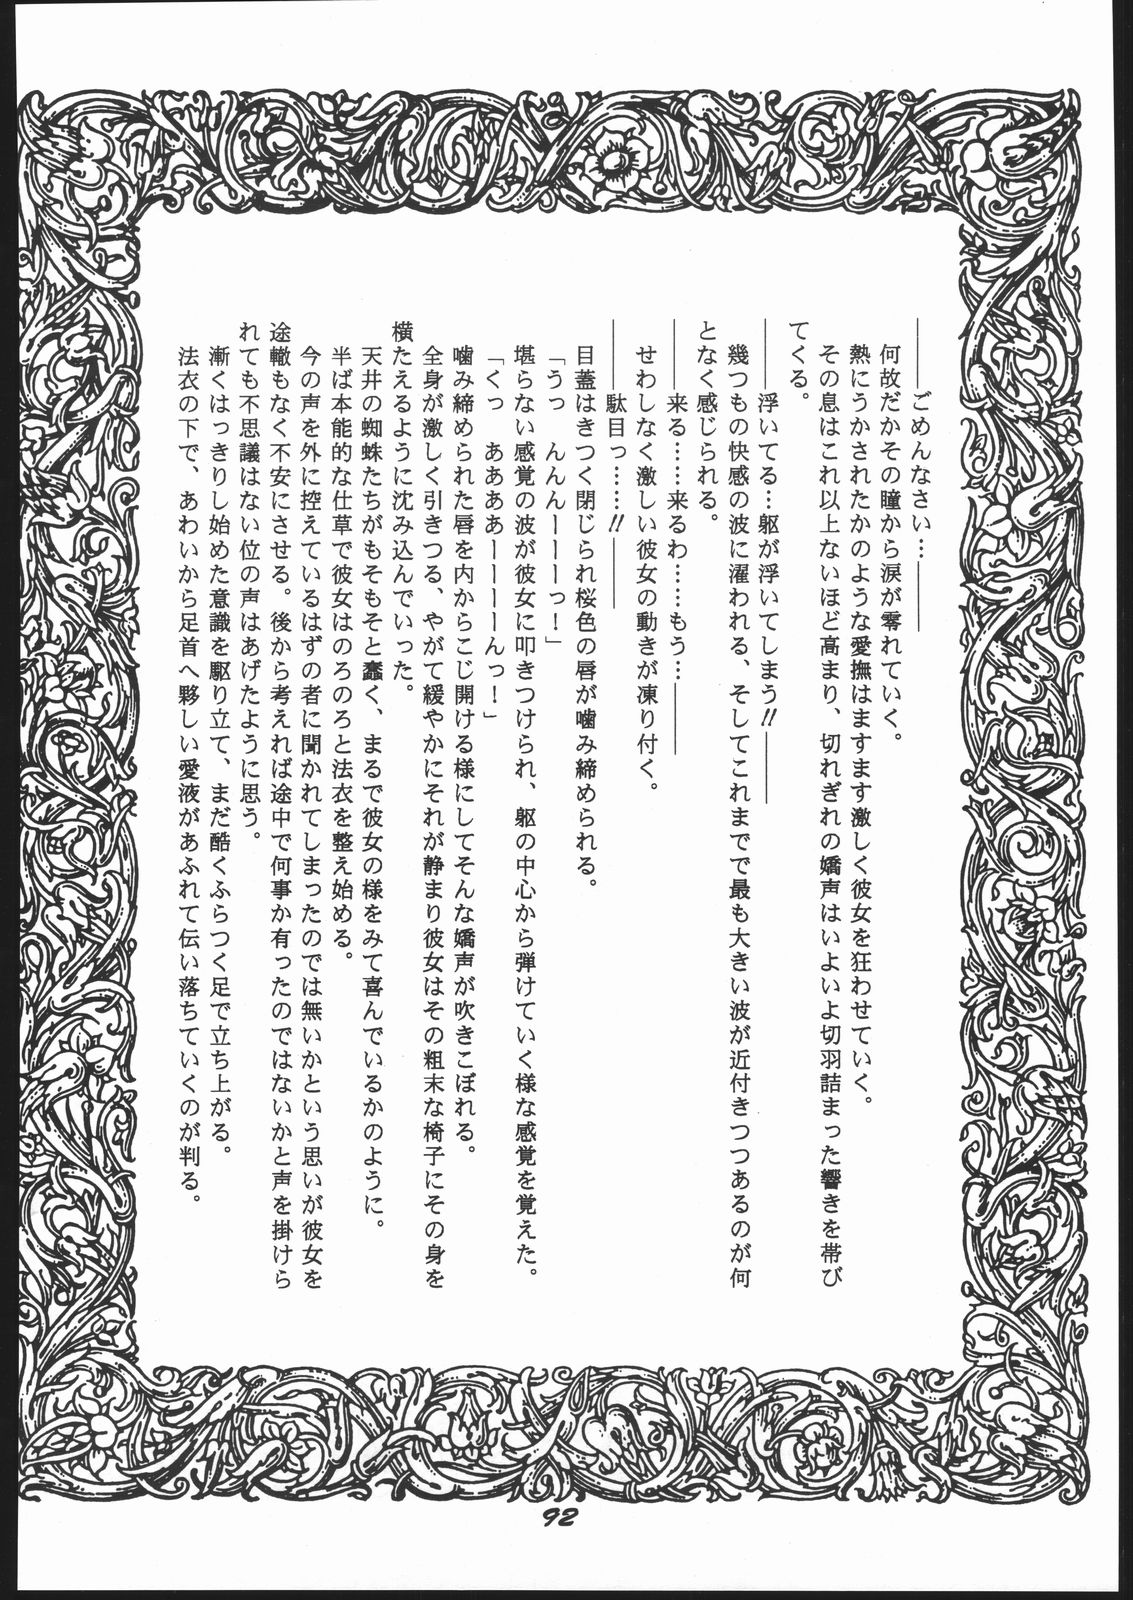 ――――ごめんなさい…――――
何故だかその瞳から涙が零れていく。
熱にうかされたかのような愛撫はますます激しく彼女を狂わせていく。
その息はこれ以上ないほど高まり、切れぎれの嬌声はいよいよ切羽詰まった響きを帯び
てくる。
――――浮いてる…躯が浮いてしまう!!――――
幾つもの快感の波に濯われる、そしてこれまでで最も大きい波が近付きつつあるのが何
となく感じられる。
――――来る……来るわ……もう…――――
せわしなく激しい彼女の動きが凍り付く。
――――駄目っ……!!――――
目蓋はきつく閉じられ桜色の唇が噛み締められる。
「うっ　んんんーーーっ！」
堪らない感覚の波が彼女に叩きつけられ、躯の中心から弾けていく様な感覚を覚えた。
「くっ　ああああーーーーんっ！」
噛み締められた唇を内からこじ開ける様にしてそんな嬌声が吹きこぼれる。
全身が激しく引きつる、やがて緩やかにそれが静まり彼女はその粗末な椅子にその身を
横たえるように沈み込んでいった。
天井の蜘蛛たちがもそもそと蠢く、まるで彼女の様をみて喜んでいるかのように。
半ば本能的な仕草で彼女はのろのろと法衣を整え始める。
今の声を外に控えているはずの者に聞かれてしまったのでは無いかという思いが彼女を
途轍もなく不安にさせる。後から考えれば途中で何事か有ったのではないかと声を掛けら
れても不思議はない位の声はあげたように思う。
漸くはっきりし始めた意識を駆り立て、まだ酷くふらつく足で立ち上がる。
法衣の下で、あわいから足首へ夥しい愛液があふれて伝い落ちていくのが判る。
92